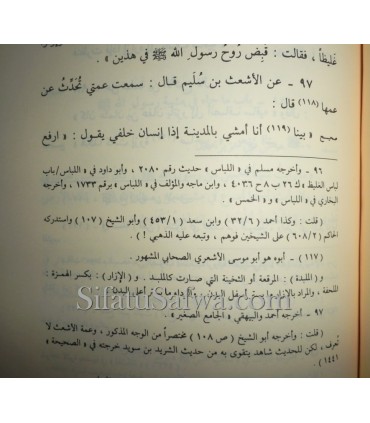 غليظاً ، فقالت : قبض روح رسول الله ﷺ في هذين » .
٩٧ - عن الأشعث بن سليم قال : سمعت عمتي تُحَدِّثُ عن
عمها (١١٨) قال :
صحيح « بينا (١١٩) أنا أمشي بالمدينة إذا إنسان خلفي يقول : « ارفع
٩٦ - وأخرجه مسلم في « اللباس » حديث رقم ٢٠٨٠ ، وأبو داود في « اللباس/باب
لباس الغليظ » ك ٢٦ ب ٨ ح ٤٠٣٦ ، وابن ماجه والمؤلف في « اللباس » برقم ١٧٣٣ ، وأخرجه
البخاري في « اللباس » و « الخمس » .
( قلت : وكذا أحمد ( ٦/ ٣٢ ) وابن سعد ( ١/ ٤٥٣ ) وأبو الشيخ ( ١٠٧ ) واستدركه
الحاكم ( ٢/ ٦٠٨ ) على الشيخين فوهم ، وتبعه عليه الذهبي ! ) .
( ١١٧ ) - أبوه هو أبو موسى الأشعري الصحابي المشهور .
و ( الملبدة ) : المرقعة أو الثخينة التي صارت كاللبد . و ( الإزار ) : بكسر الهمزة :
الملحفة ، والمراد بالإزار ما يستر أسفل البدن ، والرداء ما يستر أعلى البدن .
SifatuSafwa.com
٩٧ - أخرجه أحمد والبيهقي « الجامع الصغير » .
( قلت : وأخرجه أبو الشيخ ( ص ١٠٨ ) مختصراً من الوجه المذكور ، وعمة الأشعث لا
تعرف ، لكن للحديث شاهد يتقوى به من حديث الشريد بن سويد خرجته في « الصحيحة »
١٤٤١ ) .